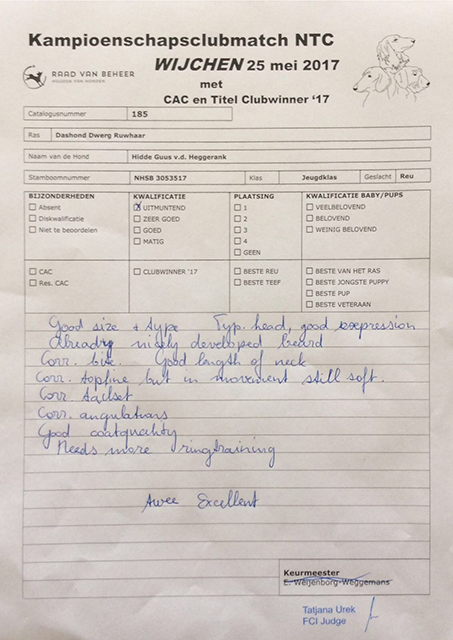 Kampioenschapsclubmatch NTC
WIJCHEN 25 mei 2017
RAAD VAN BEHEER
HOUDEN VAN HONDEN
met
CAC en Titel Clubwinner '17
Catalogusnummer 185
Ras Dashond Dwerg Ruwhaar
Naam van de Hond Hidde Guus v.d. Heggerank
Stamboomnummer NHSB 3053517 Klas Jeugdklas Geslacht Reu
BIJZONDERHEDEN KWALIFICATIE PLAATSING KWALIFICATIE BABY/PUPS
Absent UITMUNTEND 1 VEELBELOVEND
Diskwalificatie ZEER GOED 2 BELOVEND
Niet te beoordelen GOED 3 WEINIG BELOVEND
MATIG 4
GEEN
CAC CLUBWINNER '17 BESTE REU BESTE VAN HET RAS
Res. CAC BESTE TEEF BESTE JONGSTE PUPPY
BESTE PUP
BESTE VETERAAN
Good size + type Typ. head, good expression
Already nicely developed beard
Corr. bite. Good length of neck
Corr. topline but in movement still soft.
Corr. tailset
Corr. angulations
Good coatquality
Needs more ringtraining
Excellent
Keurmeester
E. Weijenborg-Weggemans
Tatjana Urek
FCI Judge